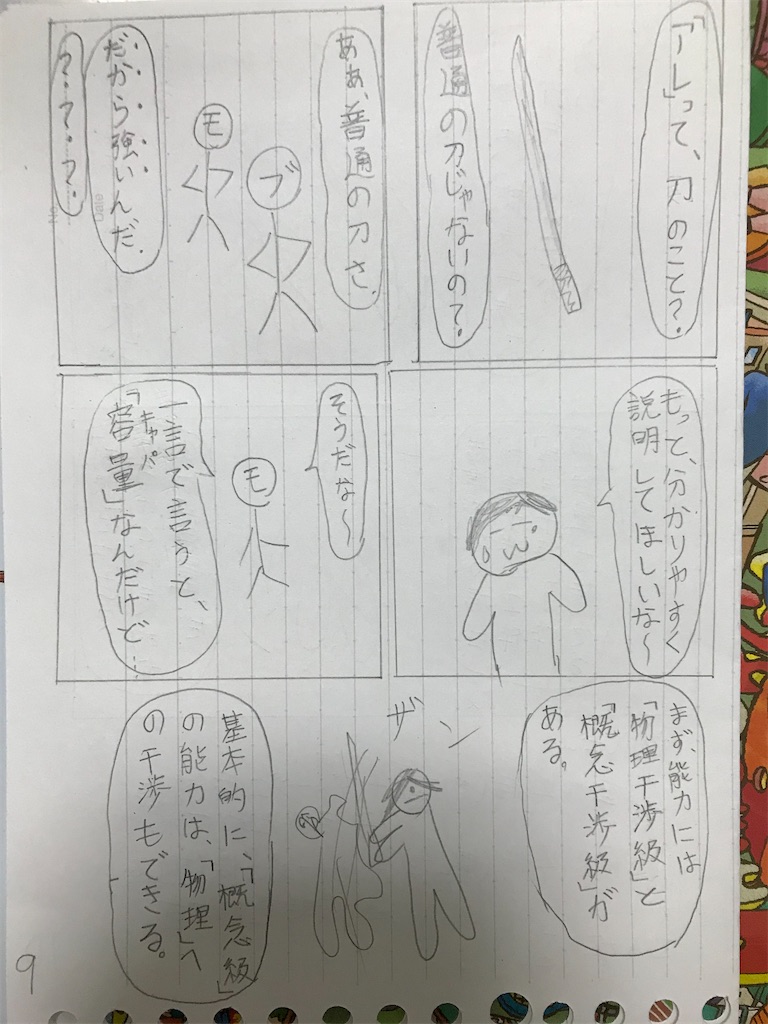 「アレ」って、刀のこと？
普通の刀じゃないの？
ああ、普通の刀さ。
ブ
モ
だから強いんだ。
？？？
もって、分かりやすく
説明してほしいな〜
そうだな〜
モ
一言で言うと、
キャパ
「容量」なんだけど…
まず、能力には
「物理干渉級」と
「概念干渉級」が
ある。
ザン
基本的に、「概念級」
の能力は、「物理」へ
の干渉もできる。
9